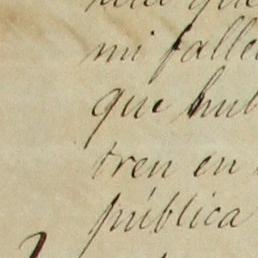 que
mi falle
que hub
tren en
pública